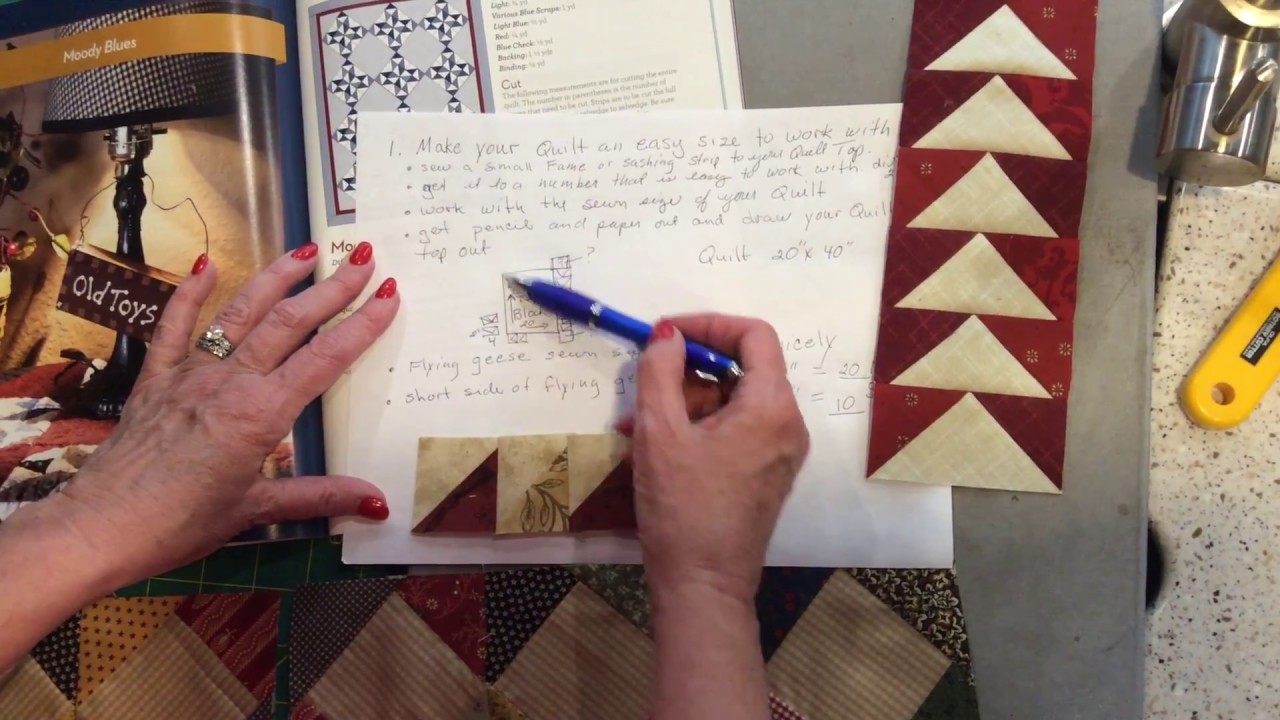 Moody Blues
Old Toys
Light: ¾ yd
Various Blue Scraps: 1 yd
Light Blue: ⅔ yd
Red: ¼ yd
Blue Check:
Backing: 1
Binding:
Cut
The following measurements are for cutting the entire
quilt. The number in parentheses is the number of
that need to be cut. Strips are to be cut the full
selvedge to selvedge. Be sure
Mo
1. Make your Quilt an easy size to work with
• sew a small Fame or sashing strip to your Quilt Top.
• get it to a number that is easy to work with
• work with the sewn size of your Quilt
• get pencil and paper out and draw your Quilt
top out
Quilt 20" x 40"
?
20
4
• Flying geese sewn
nicely
" = 20
• short side of flying
" = 10